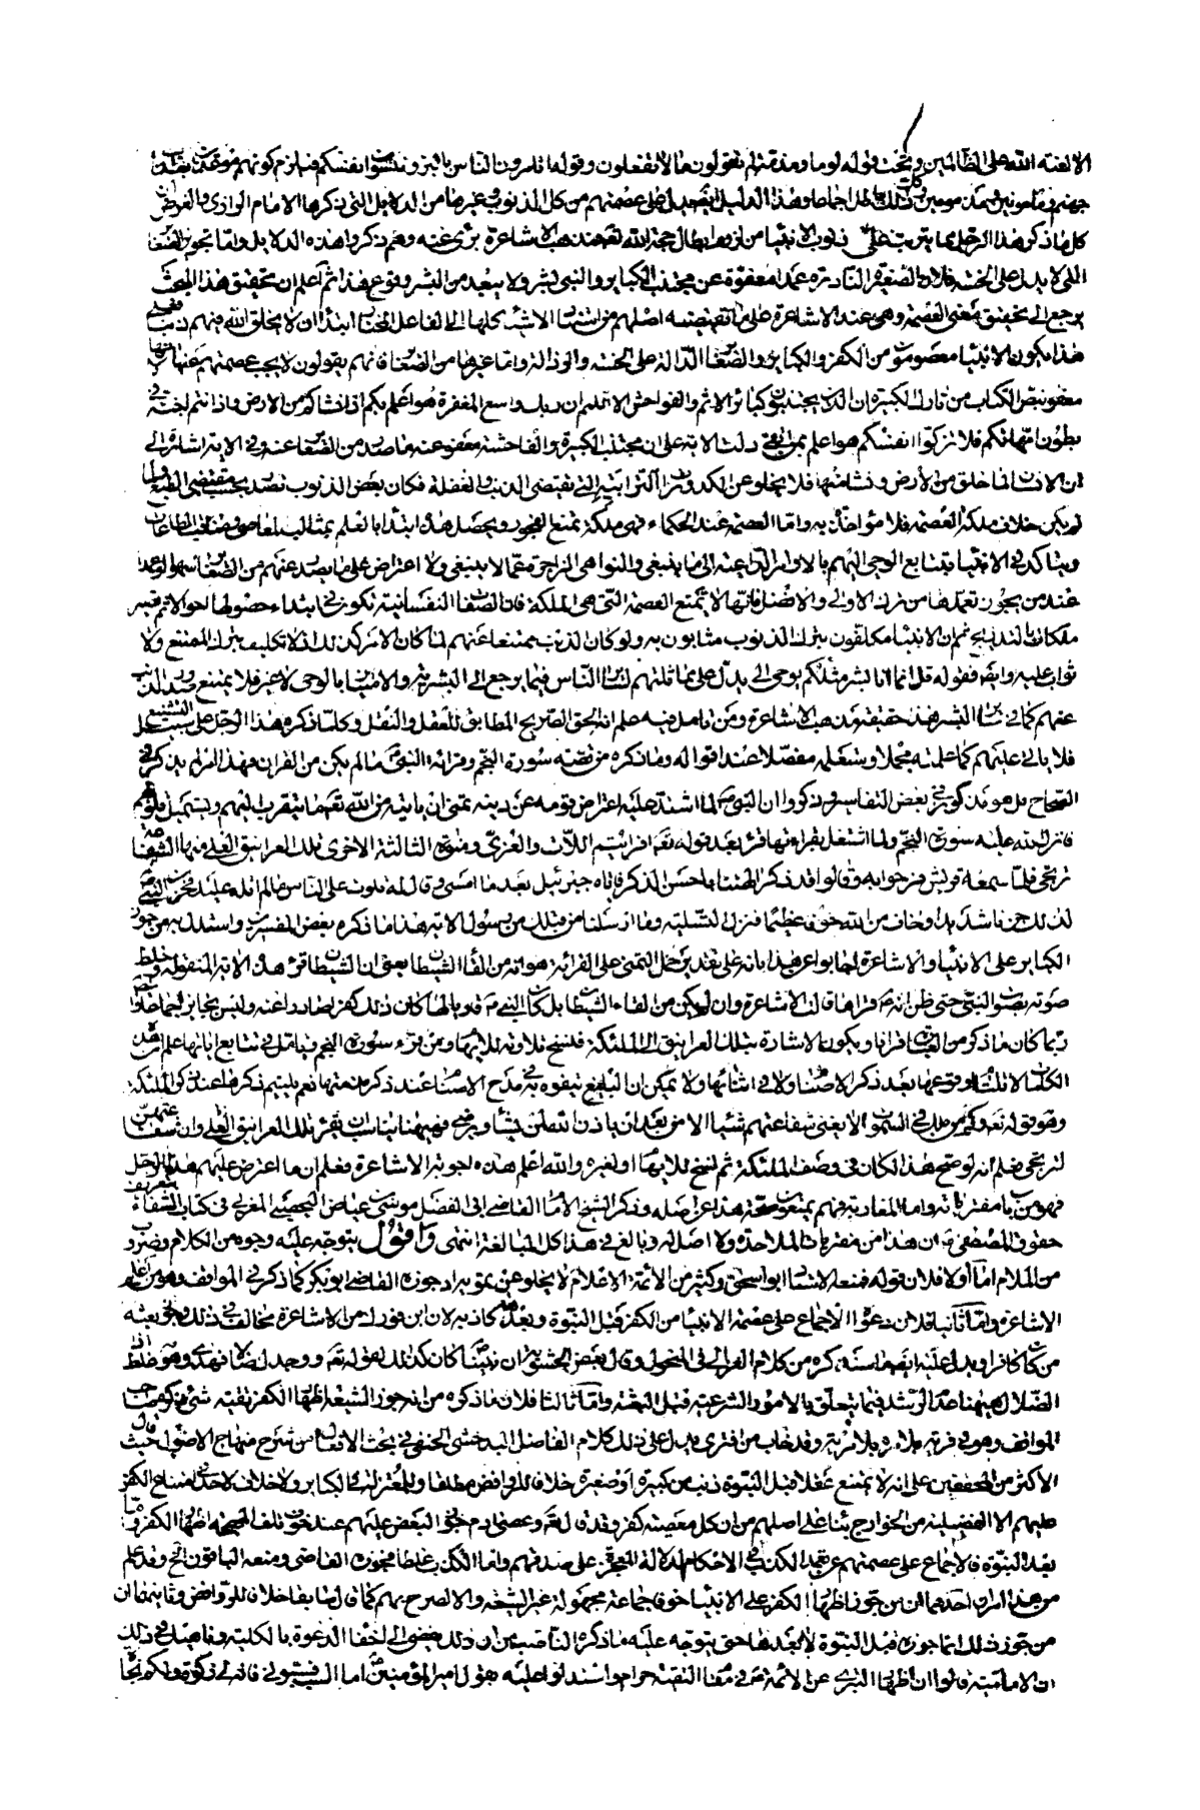 الا لعنة الله على الظالمين وتحت قوله لوما ومذمة لم تقولون ما لا تفعلون وقوله اتامرون الناس بالبر وتنسون انفسكم فيلزم كونهم موعدين بعذاب
جهنم وملعونين ومذمومين وكل ذلك باطل اجماعا وهذا الدليل ايضا يدل على عصمتهم من كل الذنوب وغيرها من الدلايل التي ذكرها الامام الرازي والغرض ان
كل ما ذكر هذا الرجل مما يترتب على ذنوب الانبياء من لزوم ابطال حجة الله تعالى فمذهب الاشاعرة برئ عنه وهم ذكروا هذه الدلايل واما تجويز الصغاير
التي لا يدل على الخسة فلان الصغيرة النادرة عمدا معفوة عن مجتنب الكباير والنبي بشر ولا يبعد من البشر وقوع هذا ثم اعلم ان تحقيق هذا المبحث
يرجع الى تحقيق معنى العصمة وهي عند الاشاعرة على ما يقتضيه اصلهم من استناد الاشياء كلها الى الفاعل المختار ابتداء ان لا يخلق الله فيهم ذنبا فعلى
هذا يكون الانبياء معصومين من الكفر والكباير والصغاير الدالة على الخسة والرذالة واما غيرها من الصغاير فانهم يقولون لا يجب عصمتهم عنها لانها
معفو بنص الكتاب من تارك الكبيرة ان الذين يجتنبون كباير الاثم والفواحش الا اللمم ان ربك واسع المغفرة هو اعلم بكم اذ انشاكم من الارض واذ انتم اجنة في
بطون امهاتكم فلا تزكوا انفسكم هو اعلم بمن اتقى دلت الاية على ان مجتنب الكبيرة والفاحشة معفو عنه ما صدر من الصغاير عنه وفي الاية اشارة الى
ان الانسان لما خلق من الارض ونشا منها فلا يخلو عن الكدورات الترابية التي تقتضي الذنب والغفلة فكان بعض الذنوب تصدر بحسب مقتضى الطبع ولما
لم يكن خلاف ملكة العصمة فلا مؤاخذة به واما العصمة عند الحكماء فهي ملكة تمنع الفجور ويحصل هذا ابتداء بالعلم بمثالب المعاصي ومناقب الطاعات
ويتاكد في الانبياء بتتابع الوحي اليهم بالاوامر الداعية الى ما ينبغي والنواهي الزاجرة عما لا ينبغي ولا اعتراض على ما يصدر عنهم من الصغاير سهوا او عمدا
عند من يجوز تعمدها من ترك الاولى والافضل فانها لا تمنع العصمة التي هي الملكة فان الصفات النفسانية تكون في ابتداء حصولها احوالا ثم تصير
ملكات بالتدريج ثم ان الانبياء مكلفون بترك الذنوب مثابون به ولو كان الذنب ممتنعا عنهم لما كان الامر كذلك اذ لا تكليف بترك الممتنع ولا
ثواب عليه وايضا فقوله قل انما انا بشر مثلكم يوحى الى يدل على مماثلتهم لسائر الناس فيما يرجع الى البشرية والامتياز بالوحي لا غير فلا يمتنع صدور الذنب
عنهم كما في ساير البشر هذا حقيقة مذهب الاشاعرة ومن تامل فيه علم انه الحق الصريح المطابق للعقل والنقل وكلما ذكره هذا الرجل على سبيل التشنيع
فلا ياتي عليهم كما علمته مجملا وستعلمه مفصلا عند اقواله وما ذكره من قصة سورة النجم وقراءة النبي ص ما لم يكن من القرآن فهذا امر لم يذكر في
الصحاح بل هو مذكور في بعض التفاسير وذكروا ان النبي ص لما اشتد عليه اعراض قومه عن دينه تمنى ان ياتيه من الله تعالى ما يتقرب اليهم ويستميل قلوبهم
فانزل الله عليه سورة النجم ولما اشتغل بقراءتها قرأ بعد قوله تعالى افرايتم اللات والعزى ومنوة الثالثة الاخرى تلك الغرانيق العلى منها الشفاعة
ترتجى فلما سمعه قريش فرحوا به وقالوا قد ذكر الهتنا باحسن الذكر فاتاه جبرئيل بعد ما امسى وقال له تلوت على الناس ما لم اتله عليك فحزن النبي ص
لذلك حزنا شديدا وخاف من الله خوفا عظيما فنزل لتسليته وما ارسلنا من قبلك من رسول الاية هذا ما ذكره بعض المفسرين واستدل به من جوز
الكباير على الانبياء والاشاعرة اجابوا عن هذا بانه على تقدير حمل التمني على القراءة هو انه من القاء الشيطان يعني ان الشيطان قرأ هذه الاية المنقولة وخلط
صوته بصوت النبي حتى ظن انه ص قراها قالت الاشاعرة وان لم يكن من القاء الشيطان بل كان النبي ص قاريا لها كان ذلك كفرا صادرا عنه وليس بجايز اجماعا وايضا
ربما كان ما ذكر من العبارة قرانا ويكون الاشارة بتلك الغرانيق الى الملئكة فنسخ تلاوته للايهام ومن قرأ سورة النجم وتامل في تتابع اياتها علم ان هذه
الكلمات لا تلتئم وقوعها بعد ذكر الاصنام ولا في اثنائها ولا يمكن ان البليغ يتفوه به في مدح الاصنام عند ذكر مذمتها نعم يلتئم ذكرها عند ذكر الملئكة
وهو قوله تعالى وكم من ملك في السموات لا يغني شفاعتهم شيئا الا من بعد ان ياذن الله لمن يشاء ويرضى فههنا يناسب ان يقرأ تلك الغرانيق العلى وان شفاعتهن
لترتجى فعلم انه لو صح هذا لكان في وصف الملئكة ثم نسخ للايهام او لغيره والله اعلم هذه اجوبة الاشاعرة فعلم ان ما اعترض عليهم هذا الرجل
فهو من مفترياته واما المغاربة فهم يمنعون صحة هذا عن اصله وذكر الشيخ الامام القاضي ابي الفضل موسى بن عياض اليحصبي المغربي في كتاب الشفاء بتعريف
حقوق المصطفى ص ان هذا من مفتريات الملاحدة ولا اصل له وبالغ في هذا كل المبالغة انتهى واقول يتوجه عليه وجوه من الكلام وضروب
من الملام اما اولا فلان قوله فمنعه الاستاد ابو اسحق وكثير من الائمة الاعلام لا يخلو عن تمويه اذ جوزه القاضي ابو بكر كما ذكر في المواقف وهو من اعاظم
الاشاعرة واما ثانيا فلان دعواه الاجماع على عصمة الانبياء من الكفر قبل النبوة وبعدها كاذبة لان ابن فورك من الاشاعرة مخالف في ذلك وتجويز بعثة
من كان كافرا ويدل عليه ايضا ما سنذكره من كلام الغزالي في المنخول وقال بعض الحشوية ان نبينا كان كذلك لقوله تعالى ووجدك ضالا فهدى وهو غلط اذ
الضلال ههنا ضد الرشد فيما يتعلق بالامور الشرعية قبل البعثة واما ثالثا فلان ما ذكره من انه جوز الشيعة اظهار الكفر تقية شئ ذكره صاحب
المواقف وهو في فريته بلا مرية وقد خاب من افترى يدل على ذلك كلام الفاضل البدخشي الحنفي في بحث الافعال من شرح منهاج الاصول حيث قال
الاكثر من المحققين على انه لا يمتنع عقلا قبل النبوة ذنب من كبيرة او صغيرة خلافا للروافض مطلقا وللمعتزلة في الكباير ولا خلاف لاحد في امتناع الكفر
عليهم الا الفضيلية من الخوارج بناء على اصلهم من ان كل معصية كفر وقد قال تعالى وعصى ادم وجوز البعض عليهم عند خوف تلف المهجة اظهار الكفر واما
بعد النبوة فالاجماع على عصمتهم عن تعمد الكذب في الاحكام لدلالة المعجزة على صدقهم واما الكذب غلطا فجوزه القاضي ومنعه الباقون الخ وقد علم
من هذا امران احدهما ان من جوز اظهار الكفر على الانبياء خوفا جماعة مجهولة غير الشيعة والا لصرح بهم كما قال سابقا خلافا للروافض وثانيهما ان
من جوز ذلك انما جوزه قبل النبوة لا بعدها حتى يتوجه عليه ما ذكره الناصب من ان ذلك يفضي الى اخفاء الدعوة بالكلية وما قيل في ذلك
ان الامامية قالوا ان اظهار التبري عن الائمة ع في مقام التقية جواز واستدلوا عليه بقول امير المؤمنين ع اما السب فسبوني فانه لي زكوة ولكم نجاة